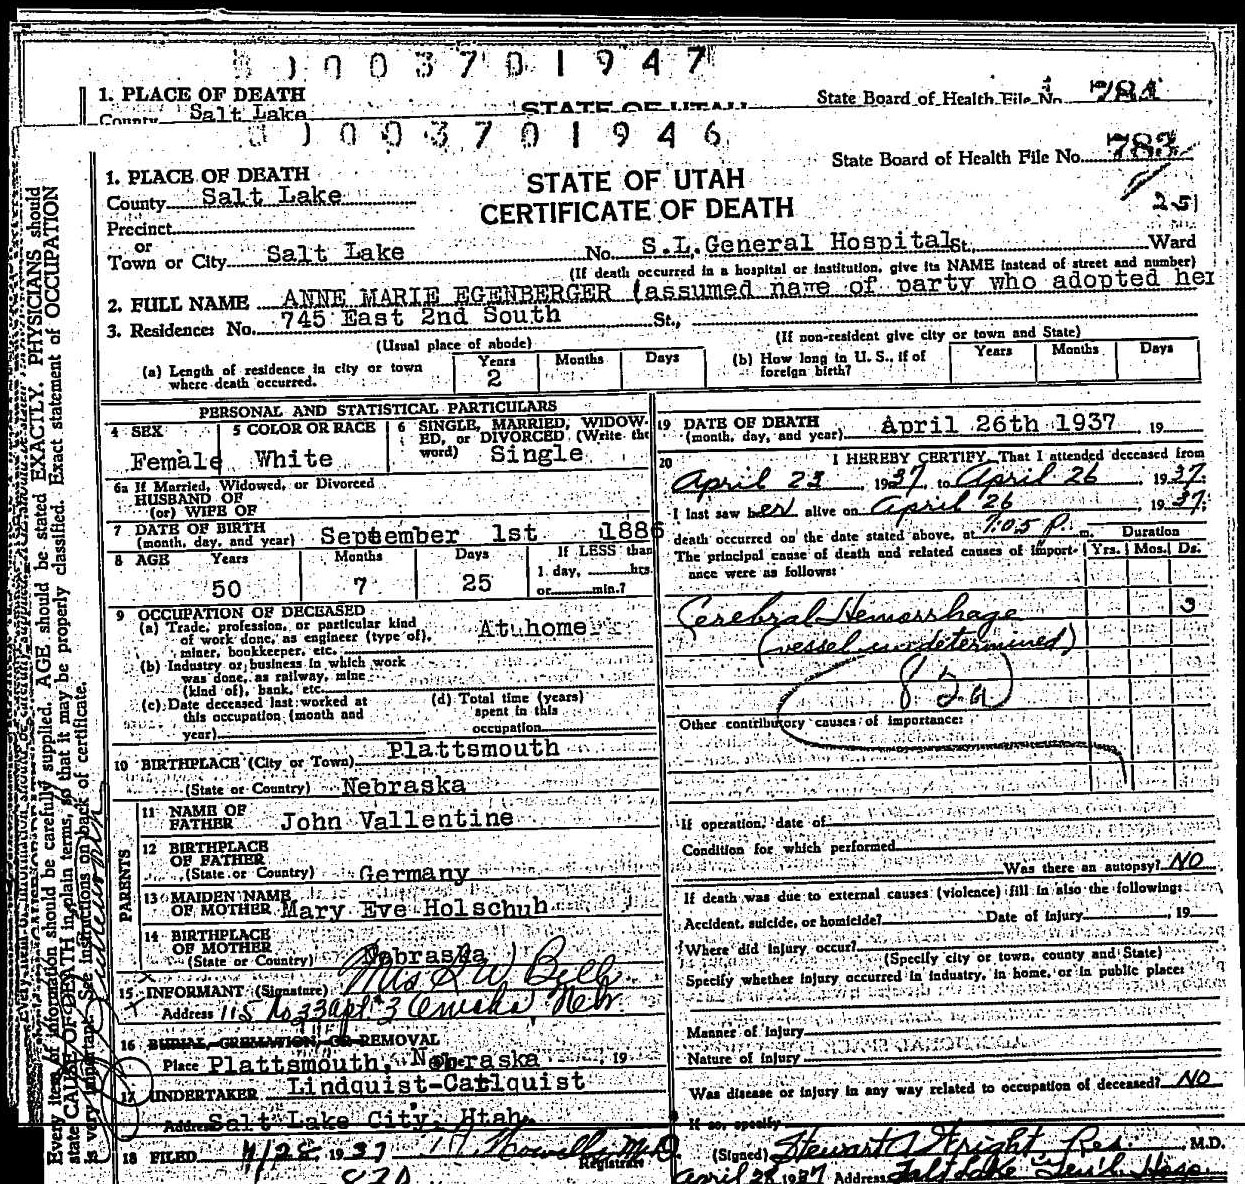 0003701947
1. PLACE OF DEATH
County Salt Lake
STATE OF UTAH
State Board of Health File No. 784
0003701946
State Board of Health File No. 783
1. PLACE OF DEATH
STATE OF UTAH
CERTIFICATE OF DEATH
251
County Salt Lake
Precinct
or
Town or City Salt Lake No. S.L.General Hospital St. Ward
(If death occurred in a hospital or institution, give its NAME instead of street and number)
2. FULL NAME ANNE MARIE EGENBERGER (assumed name of party who adopted her
3. Residence: No. 745 East 2nd South St.,
(Usual place of abode) (If non-resident give city or town and State)
(a) Length of residence in city or town where death occurred. Years 2 Months Days
(b) How long in U. S., if of foreign birth? Years Months Days
PERSONAL AND STATISTICAL PARTICULARS
4 SEX Female
5 COLOR OR RACE White
6 SINGLE, MARRIED, WIDOWED, or DIVORCED (Write the word) Single
6a If Married, Widowed, or Divorced
HUSBAND OF
(or) WIFE OF
7 DATE OF BIRTH
(month, day, and year) September 1st 1886
8 AGE Years 50 Months 7 Days 25 If LESS than 1 day, hrs. or min.?
9 OCCUPATION OF DECEASED
(a) Trade, profession, or particular kind of work done, as engineer (type of), miner, bookkeeper, etc. At home
(b) Industry or business in which work was done, as railway, mine (kind of), bank, etc.
(c) Date deceased last worked at this occupation (month and year)
(d) Total time (years) spent in this occupation
10 BIRTHPLACE (City or Town) Plattsmouth
(State or Country) Nebraska
PARENTS
11 NAME OF FATHER John Vallentine
12 BIRTHPLACE OF FATHER
(State or Country) Germany
13 MAIDEN NAME OF MOTHER Mary Eve Holschuh
14 BIRTHPLACE OF MOTHER
(State or Country) Nebraska
15 INFORMANT (Signature) Mrs R W Bell
Address 115 So 33 apt #3 Omaha, Nebr.
16 BURIAL, CREMATION, OR REMOVAL
Place Plattsmouth, Nebraska 19
17 UNDERTAKER Lindquist-Carlquist
Address Salt Lake City, Utah.
18 FILED 4/28 1937 M.D. Registrar
19 DATE OF DEATH
(month, day, and year) April 26th 1937, 19
20 I HEREBY CERTIFY, That I attended deceased from
April 23, 1937, to April 26, 1937.
I last saw her alive on April 26, 1937.
death occurred on the date stated above, at 7:05 P. m.
Duration
Yrs. Mos. Ds.
The principal cause of death and related causes of importance were as follows:
Cerebral Hemorrhage 3
(vessel undetermined)
82a
Other contributory causes of importance:
If operation, date of
Condition for which performed
Was there an autopsy? NO
If death was due to external causes (violence) fill in also the following:
Accident, suicide, or homicide? Date of injury, 19
Where did injury occur?
(Specify city or town, county and State)
Specify whether injury occurred in industry, in home, or in public place:
Manner of injury
Nature of injury
Was disease or injury in any way related to occupation of deceased? NO
If so, specify
(Signed) Stewart A Wright Res. M.D.
April 28 1937 Address Salt Lake Gen'l Hosp.
Every item of information should be carefully supplied. AGE should be stated EXACTLY. PHYSICIANS should
state CAUSE OF DEATH in plain terms, so that it may be properly classified. Exact statement of OCCUPATION
is very important. See instructions on back of certificate.